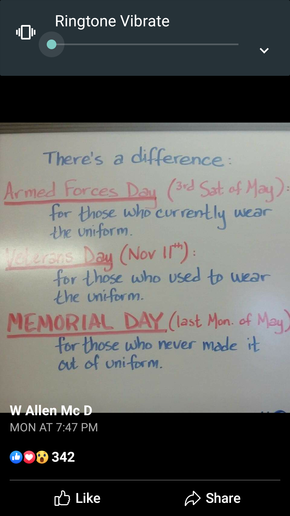 Ringtone Vibrate
There's a difference:
Armed Forces Day (3rd Sat of May):
for those who currently wear
the uniform.
Veterans Day (Nov 11th):
for those who used to wear
the uniform.
MEMORIAL DAY (last Mon. of May)
for those who never made it
out of uniform.
W Allen Mc D
MON AT 7:47 PM
342
Like Share